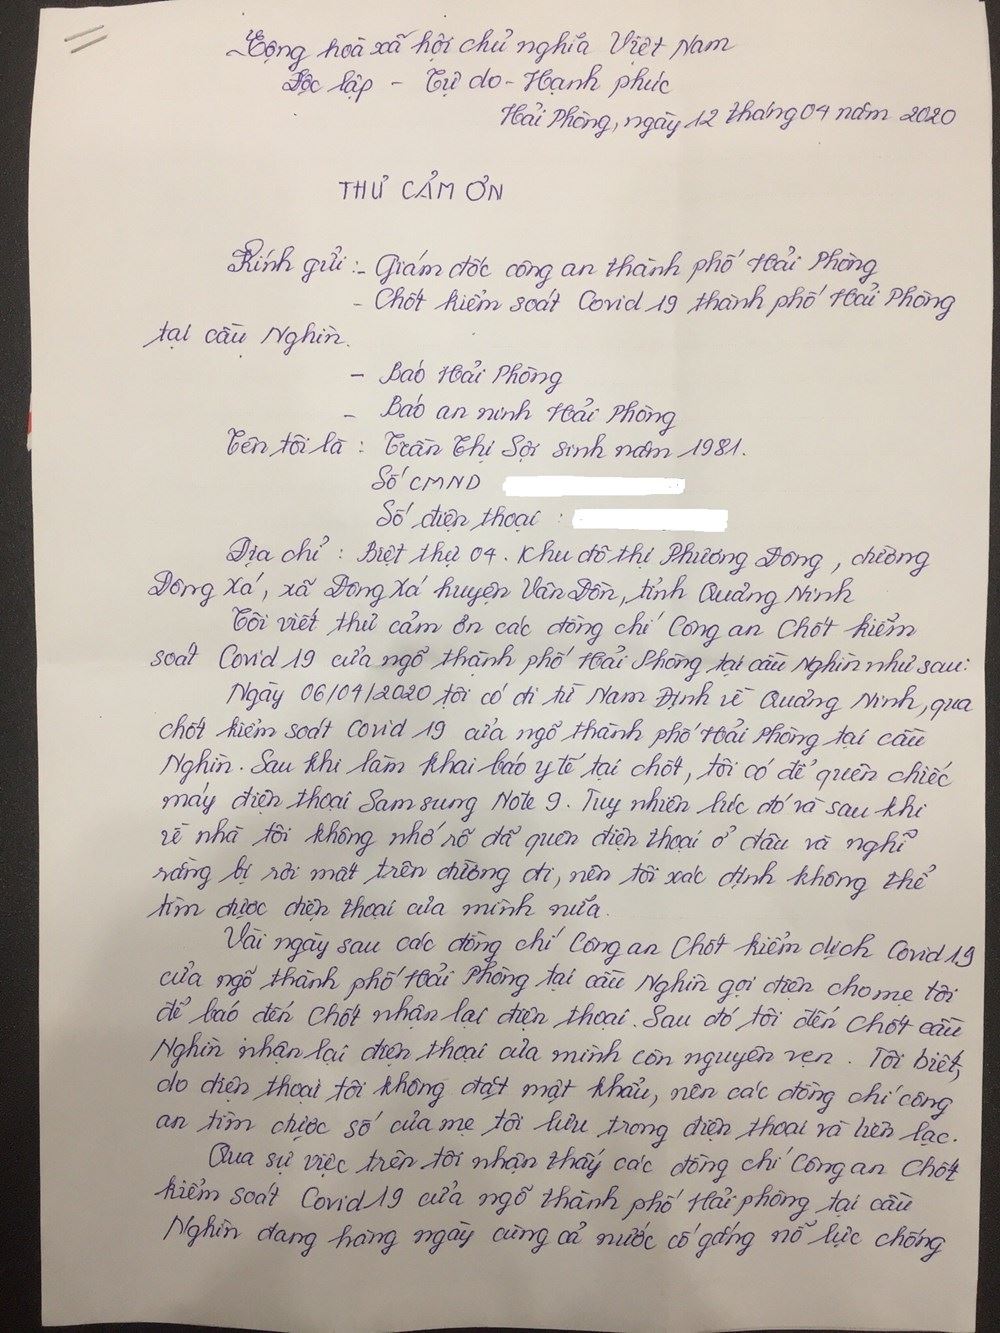 Cộng hoà xã hội chủ nghĩa Việt Nam
Độc lập - Tự do - Hạnh phúc
Hải Phòng, ngày 12 tháng 04 năm 2020
THƯ CẢM ƠN
Kính gửi :- Giám đốc công an thành phố Hải Phòng
- Chốt kiểm soát Covid 19 thành phố Hải Phòng
tại cầu Nghìn.
- Báo Hải Phòng
- Báo an ninh Hải Phòng
Tên tôi là : Trần Thị Sợi sinh năm 1981.
Số CMND
Số điện thoại :
Địa chỉ : Biệt thự 04. Khu đô thị Phương Đông, đường
Đông Xá, xã Đông Xá huyện Vân Đồn, tỉnh Quảng Ninh
Tôi viết thư cảm ơn các đồng chí Công an Chốt kiểm
soát Covid 19 cửa ngõ thành phố Hải Phòng tại cầu Nghìn như sau:
Ngày 06/04/2020 tôi có đi từ Nam Định về Quảng Ninh, qua
chốt kiểm soát Covid 19 cửa ngõ thành phố Hải Phòng tại cầu
Nghìn. Sau khi làm khai báo y tế tại chốt, tôi có để quên chiếc
máy điện thoại Samsung Note 9. Tuy nhiên lúc đó và sau khi
về nhà tôi không nhớ rõ đã quên điện thoại ở đâu và nghĩ
rằng bị rơi mất trên đường đi, nên tôi xác định không thể
tìm được điện thoại của mình nữa.
Vài ngày sau các đồng chí Công an Chốt kiểm dịch Covid 19
cửa ngõ thành phố Hải Phòng tại cầu Nghìn gọi điện cho mẹ tôi
để báo đến Chốt nhận lại điện thoại. Sau đó tôi đến Chốt cầu
Nghìn nhận lại điện thoại của mình còn nguyên vẹn. Tôi biết,
do điện thoại tôi không đặt mật khẩu, nên các đồng chí công
an tìm được số của mẹ tôi lưu trong điện thoại và liên lạc.
Qua sự việc trên tôi nhận thấy các đồng chí Công an Chốt
kiểm soát Covid 19 cửa ngõ thành phố Hải phòng tại cầu
Nghìn đang hàng ngày cùng cả nước cố gắng nỗ lực chống